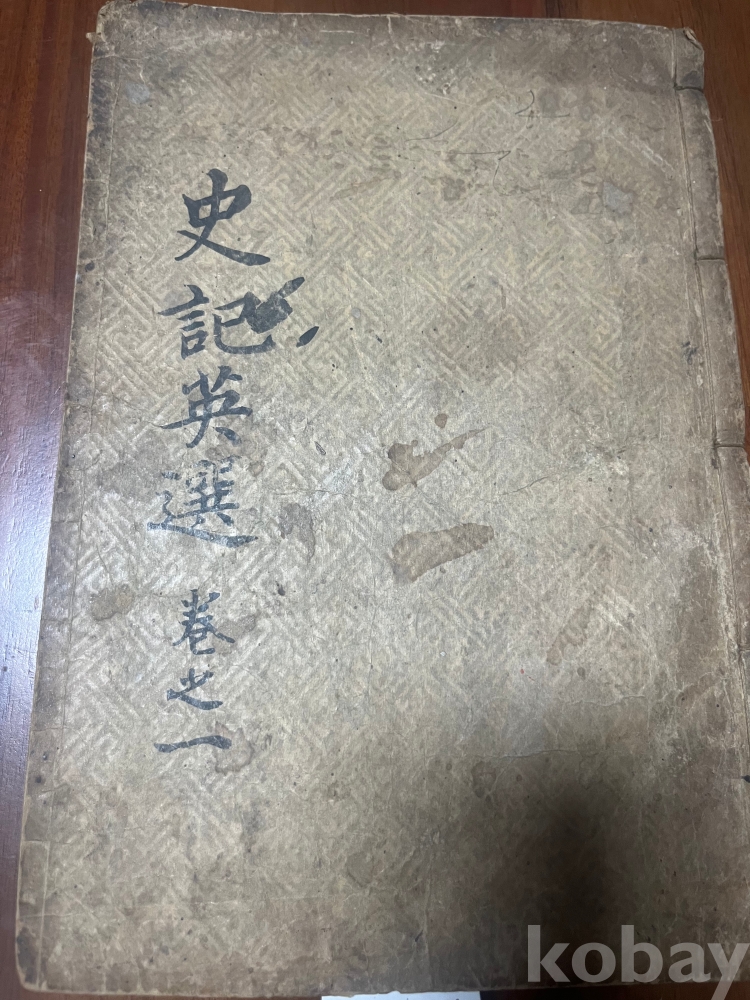 史記英選 卷之一
kobay